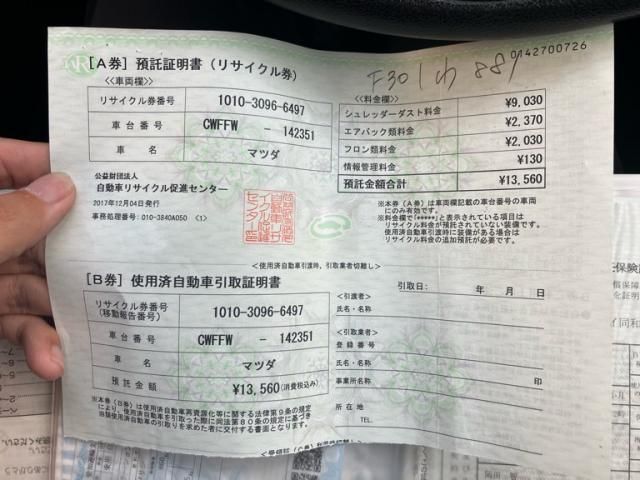 0142700726
[A券] 預託証明書(リサイクル券)
F301
<<車両欄>>
リサイクル券番号 1010-3096-6497
車台番号 CWFFW - 142351
車名 マツダ
<<料金欄>>
シュレッダーダスト料金 ¥9,030
エアバック類料金 ¥2,370
フロン類料金 ¥2,030
情報管理料金 ¥130
預託金額合計 ¥13,560
公益財団法人
自動車リサイクル促進センター
2017年12月04日発行
事務処理番号:010-3840A050 〈1〉
※本券(A券)は車両欄記載の車台番号の車両
にのみ有効です。
※料金欄で「*****」と表示されている項目は
リサイクル料金が預託されていない装備です。
自動車引渡時に装備がある場合は
リサイクル料金の追加預託が必要です。
<使用済自動車引渡時、引取業者切離し>
[B券] 使用済自動車引取証明書
リサイクル券番号
(移動報告番号) 1010-3096-6497
車台番号 CWFFW - 142351
車名 マツダ
預託金額 ¥13,560(消費税込み)
※本券(B券)は使用済自動車再資源化等に関する法律第9条の規定
により、使用済自動車を引取った際に同法第80条の規定に基づき
当該使用済自動車の引取りを求めた者に交付する書面となります。
引取日: 年 月 日
<引渡者>
氏名・名称
<引取業者>
登録番号
氏名・名称
事業所名称 印
所在地
TEL.